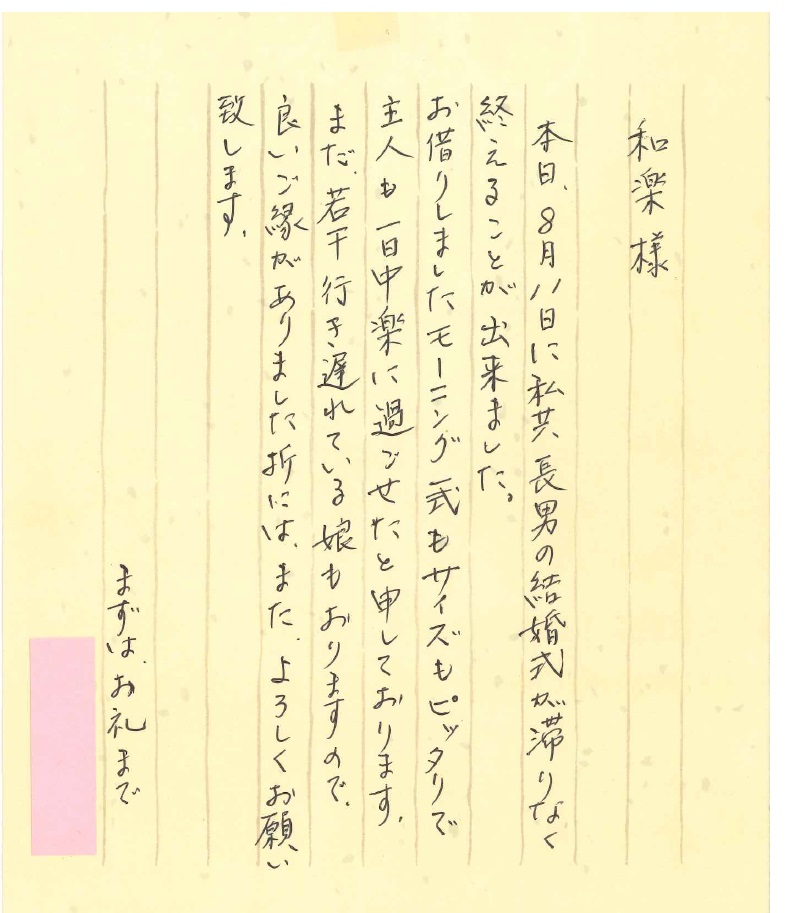 和楽様
本日、8月八日に私共、長男の結婚式が滞りなく
終えることが出来ました。
お借りしましたモーニング一式もサイズもピッタリで
主人も一日中楽に過ごせたと申しております。
まだ、若干行き遅れている娘もおりますので、
良いご縁がありました折には、また、よろしくお願い
致します。
まずは、お礼まで